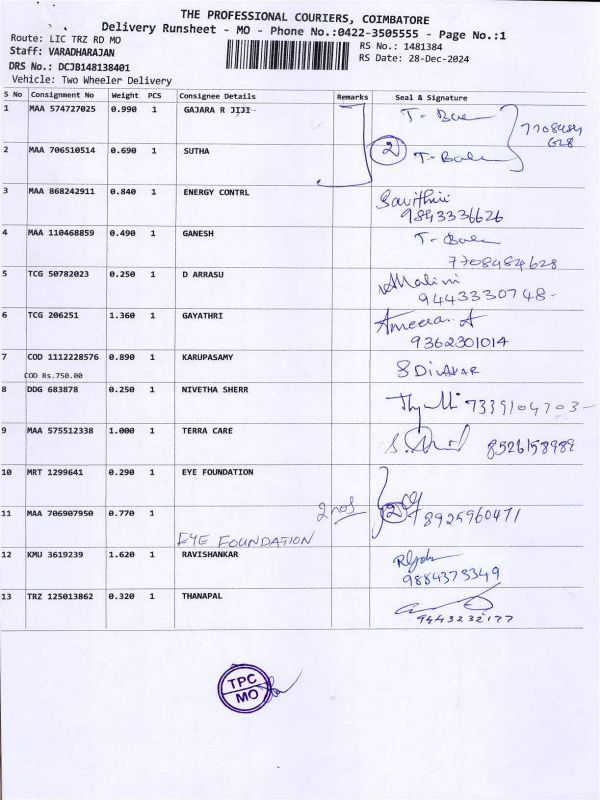 THE PROFESSIONAL COURIERS, COIMBATORE
Delivery Runsheet - MO - Phone No.:0422-3505555 - Page No.:1
Route: LIC TRZ RD MO
Staff: VARADHARAJAN
DRS No.: DCJB148138401
Vehicle: Two Wheeler Delivery
RS No.: 1481384
RS Date: 28-Dec-2024
S No Consignment No Weight PCS Consignee Details Remarks Seal & Signature
1 MAA 574727025 0.990 1 GAJARA R JIJI T. 
7708484
628
2 MAA 706510514 0.690 1 SUTHA 2 T.
3 MAA 868242911 0.840 1 ENERGY CONTRL Savithiri
9843336626
4 MAA 110468859 0.490 1 GANESH T.
7708484628
5 TCG 50782023 0.250 1 D ARRASU Malini
9443330748-
6 TCG 206251 1.360 1 GAYATHRI Ameera A
9362301014
7 COD 1112228576 0.890 1 KARUPASAMY S DIVAKAR
COD Rs.750.00
8 DDG 683878 0.250 1 NIVETHA SHERR 7339104703-
9 MAA 575512338 1.000 1 TERRA CARE 8526158989
10 MRT 1299641 0.290 1 EYE FOUNDATION
11 MAA 706907950 0.770 1 2 nos 2 8925960471
EYE FOUNDATION
12 KMU 3619239 1.620 1 RAVISHANKAR
9884373349
13 TRZ 125013862 0.320 1 THANAPAL
9443232177
TPC
MO